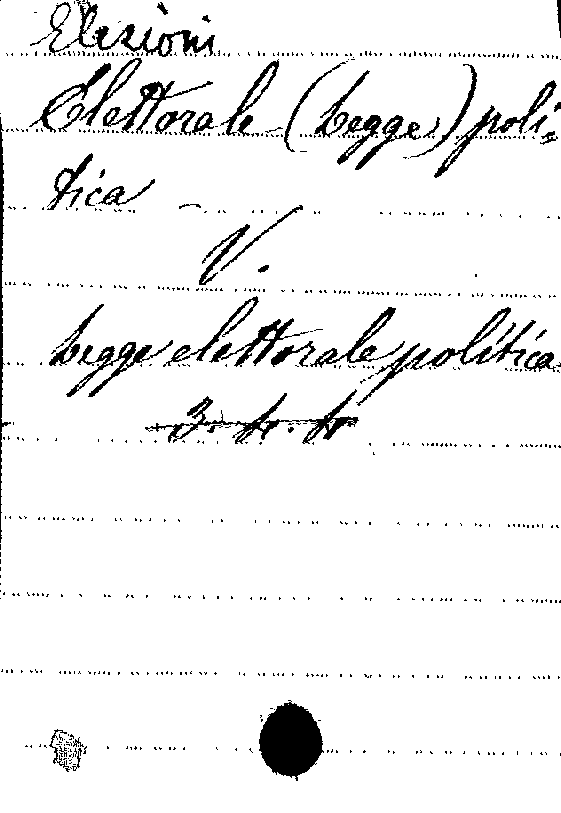 Elezioni
Elettorale (Legge) poli=
tica –
V.
Legge elettorale politica